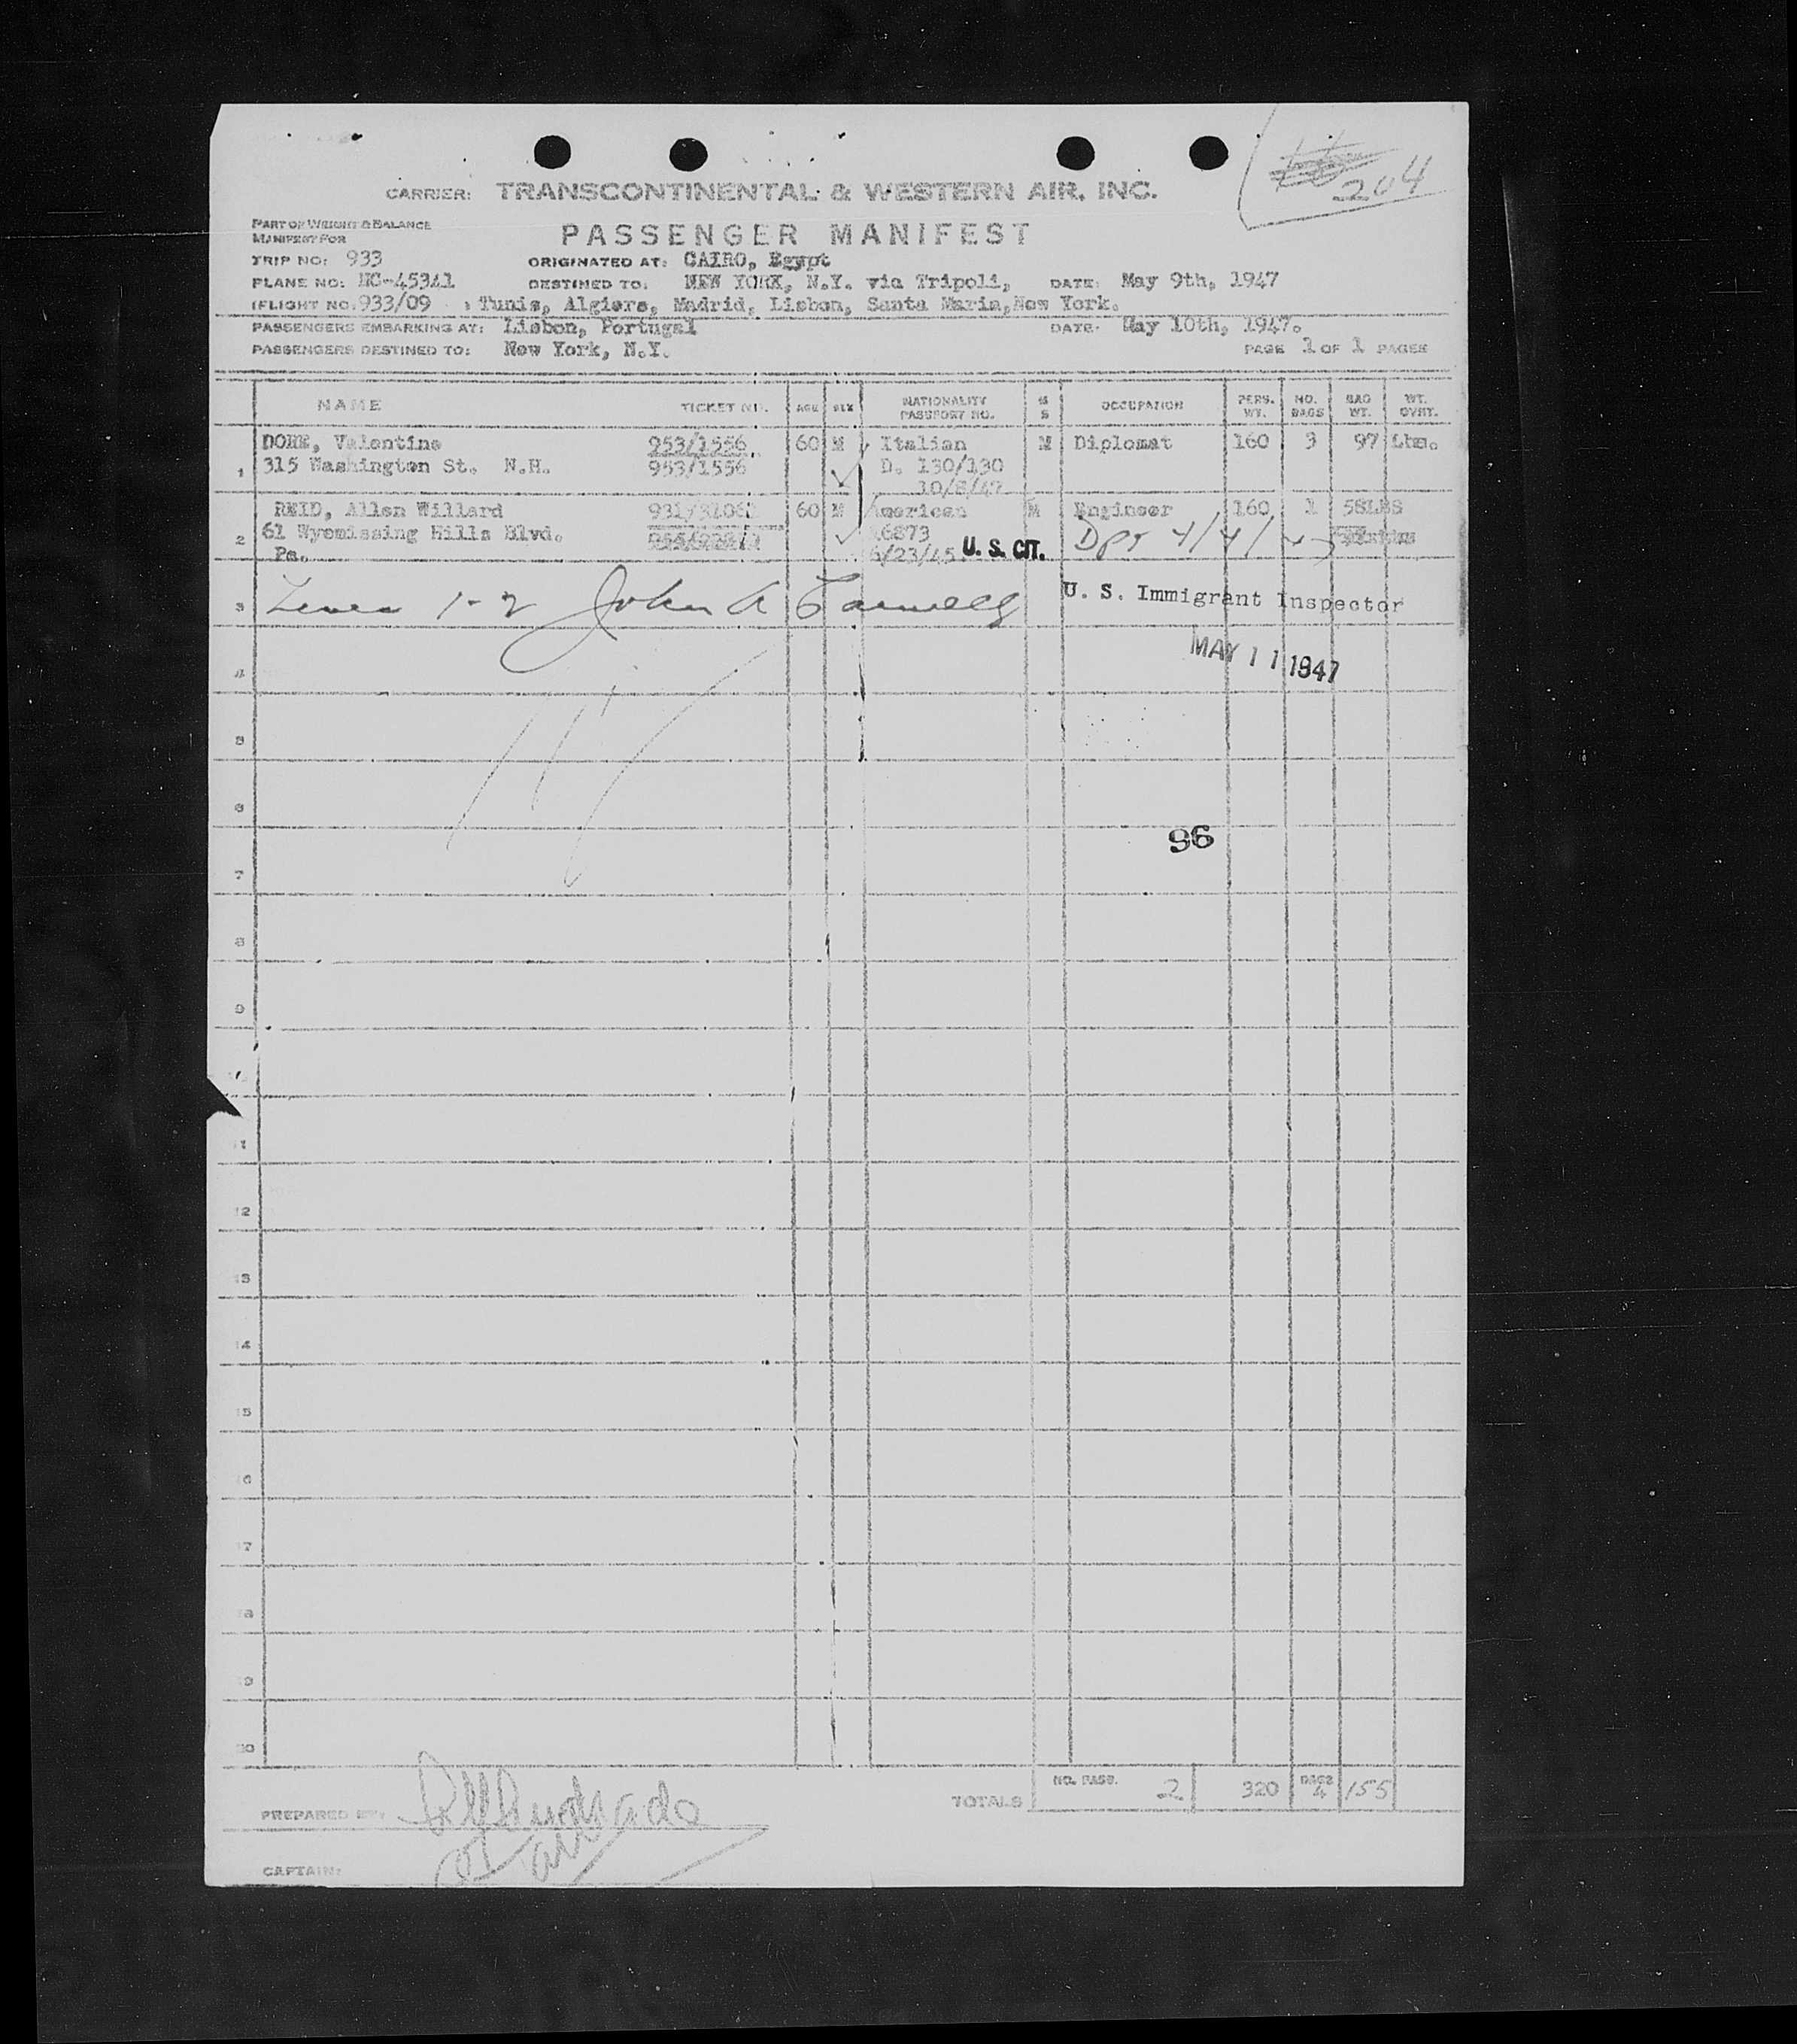 204
CARRIER: TRANSCONTINENTAL & WESTERN AIR, INC.
PART OF WEIGHT & BALANCE
MANIFEST FOR
PASSENGER MANIFEST
TRIP NO: 933 ORIGINATED AT: CAIRO, Egypt
PLANE NO: NC-45341 DESTINED TO: NEW YORK, N.Y. via Tripoli, DATE: May 9th, 1947
FLIGHT NO. 933/09 Tunis, Algiers, Madrid, Lisbon, Santa Maria, New York.
PASSENGERS EMBARKING AT: Lisbon, Portugal DATE: May 10th, 1947.
PASSENGERS DESTINED TO: New York, N.Y. PAGE 1 OF 1 PAGES
NAME TICKET NO. AGE SEX NATIONALITY PASSPORT NO. M S OCCUPATION PERS. WT. NO. BAGS BAG WT. WT. OVRT.
DORE, Valentino 953/1556 60 M Italian M Diplomat 160 3 97 Lbs.
1 315 Washington St. N.H. 953/1556 D. 130/130
10/8/47
REID, Allen Willard 60 M American M Engineer 160 1 58LBS
2 61 Wyomissing Hills Blvd. 6873
Pa. 6/23/45 U. S. CIT.
3 1-2 John A U. S. Immigrant Inspector
MAY 11 1947
4
5
6
96
7
8
9
11
12
13
14
15
16
17
18
19
20
TOTALS NO. PASS. 2 320 BAGS 4 155
PREPARED BY:
CAPTAIN: